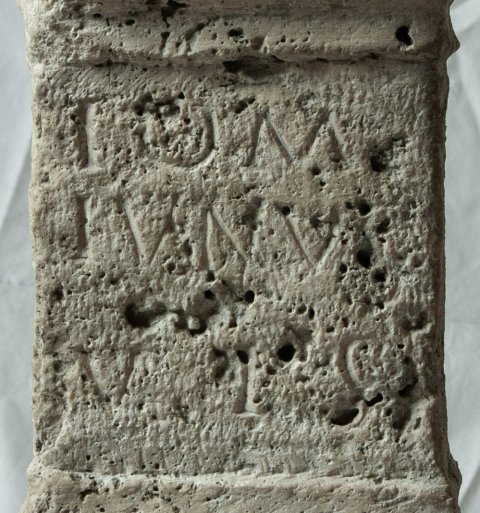 IOM
IVNV
V L